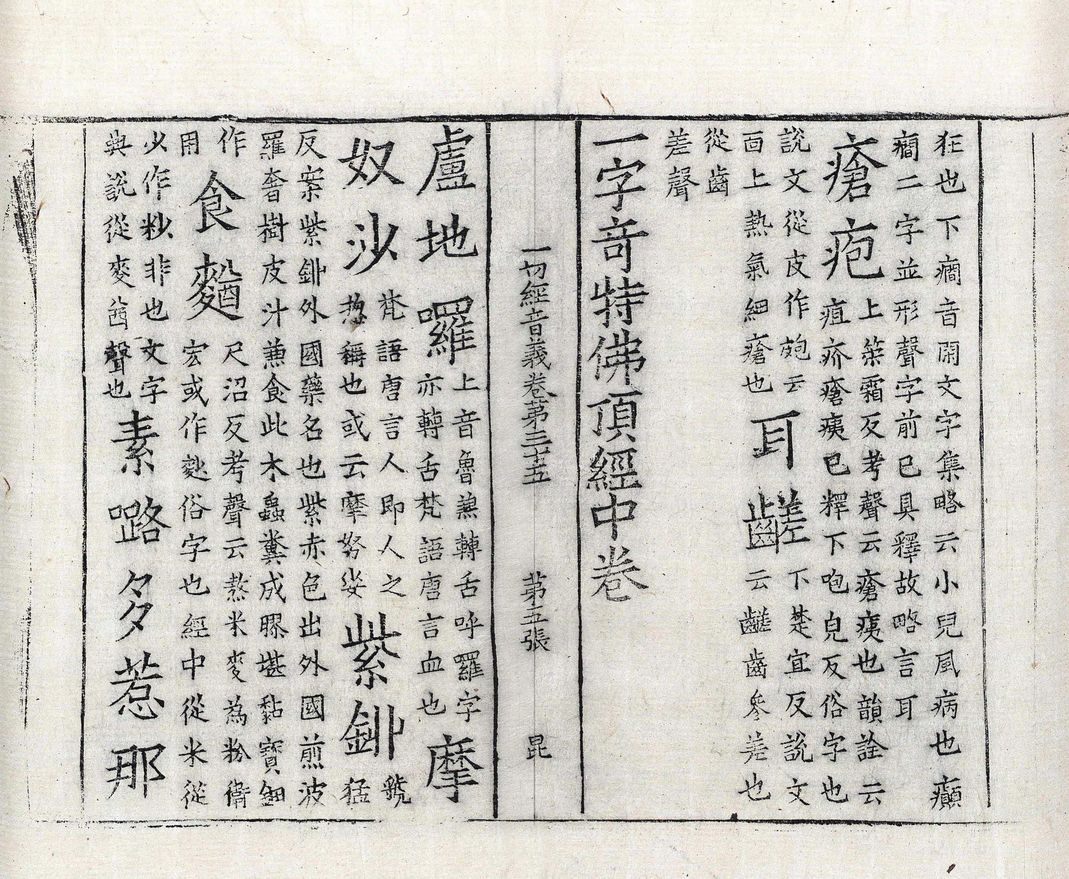 狂也下癎音閑文字集略云小兒風病也癲
癎二字並形聲字前已具釋故略言耳
瘡疱上筞霜反考聲云瘡痍也韻詮云
疽疥瘡痍已釋下咆皃反俗字也
說文從皮作皰云
面上熱氣細瘡也
耳齹下楚宜反說文
云齹齒參差也
從齒
差聲
一字竒特佛頂經中卷
一切經音義卷第三十五 第五張 昆
盧地囉上音魯兼轉舌呼羅字
亦轉舌梵語唐言血也
摩
奴沙梵語唐言人即人之
揔稱也或云摩努娑
紫鉚虢
猛
反案紫鉚外國藥名也紫赤色出外國煎波
羅奢樹皮汁兼食此木蟲糞成膠堪黏寶鈿
作
用
食䴬尺沼反考聲云熬米麥為粉
或作麨俗字也經中從米從
少作粆非也文字
典說從麥酋聲也
素㗰多惹那